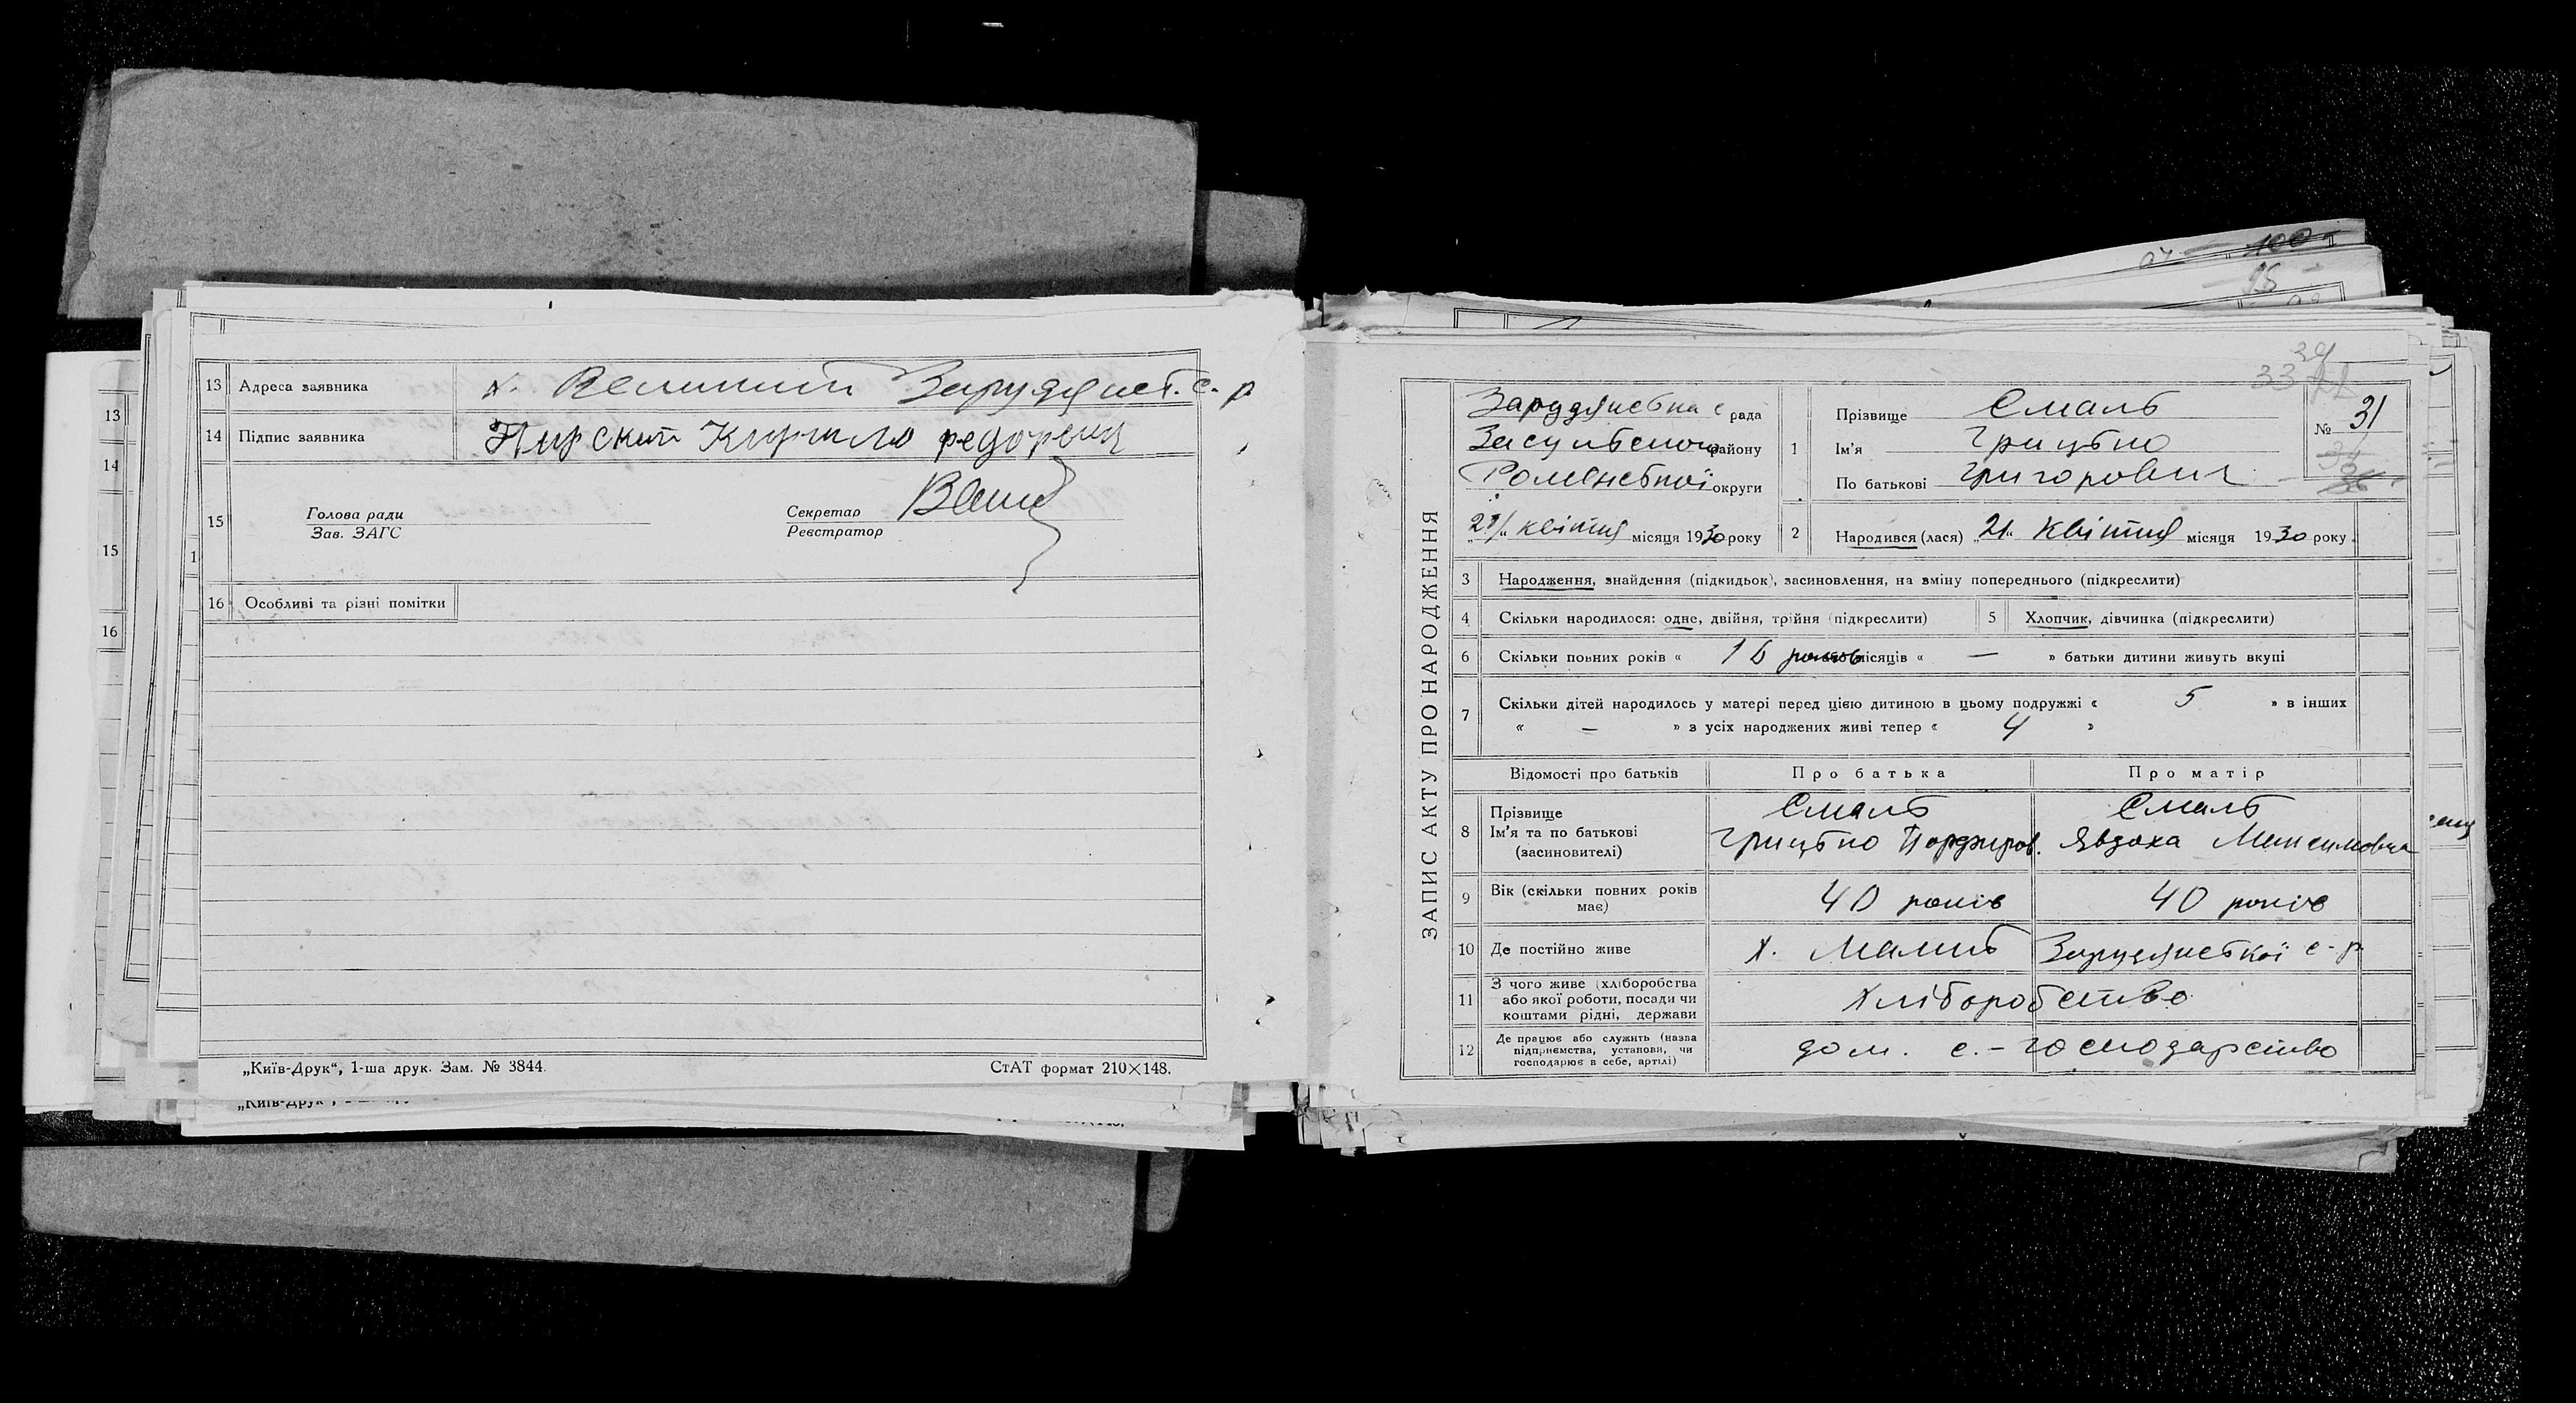 13 Адреса заявника х. Великий Зарудянст. с-р
14 Підпис заявника Пирский Кирило
15 Голова ради
Зав. ЗАГС
Секретар
Реєстратор
16 Особливі та різні помітки
„Київ-Друк“, 1-ша друк. Зам. № 3844.
СтАТ формат 210×148.
13
14
15
16
ЗАПИС АКТУ ПРО НАРОДЖЕННЯ
Зарудянська с рада
Засульського району
Роменської округи
квітня місяця 1930 року
1 Прізвище Смаль
Ім'я Грицько
По батькові Григорович
№ 31
2 Народився (лася) „21“ Квітня місяця 1930 року.
3 Народження, знайдення (підкидьок), засиновлення, на зміну попереднього (підкреслити)
4 Скільки народилося: одне, двійня, трійня (підкреслити) 5 Хлопчик, дівчинка (підкреслити)
6 Скільки повних років « 16 років місяців « — » батьки дитини живуть вкупі
7 Скільки дітей народилось у матері перед цією дитиною в цьому подружжі « 5 » в інших
« — » з усіх народжених живі тепер « 4 »
Відомості про батьків Про батька Про матір
8 Прізвище Смаль Смаль
Ім'я та по батькові Грицько Порфиров. Явдоха Максимовна
(засновителі)
9 Вік (скільки повних років має) 40 років 40 років
10 Де постійно живе х. Малий Зарудянської с-р.
11 З чого живе (хліборобства
або якої роботи, посади чи
коштами рідні, держави
Хліборобство
12 Де працює або служить (назва
підприємства, установи, чи
господарює в себе, артілі)
дом. с.-господарство